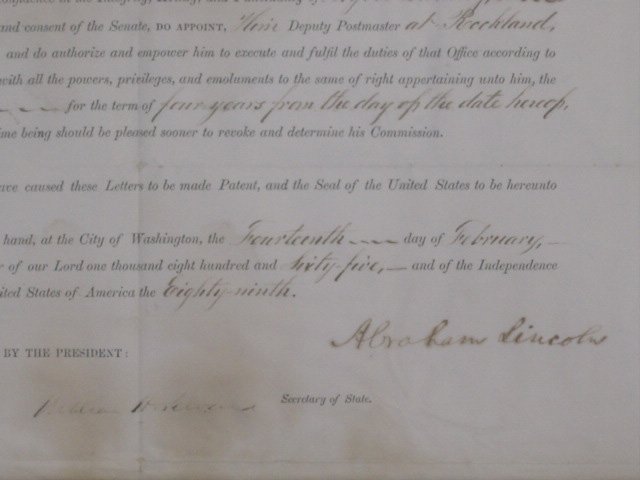 and consent of the Senate, DO APPOINT, Him Deputy Postmaster at Rockland,
and do authorize and empower him to execute and fulfil the duties of that Office according to
with all the powers, privileges, and emoluments to the same of right appertaining unto him, the
for the term of four years from the day of the date hereof,
me being should be pleased sooner to revoke and determine his Commission.
ave caused these Letters to be made Patent, and the Seal of the United States to be hereunto
hand, at the City of Washington, the Fourteenth day of February,
r of our Lord one thousand eight hundred and Sixty-five, and of the Independence
ited States of America the Eighty-ninth.
Abraham Lincoln
BY THE PRESIDENT:
William H. Seward
Secretary of State.